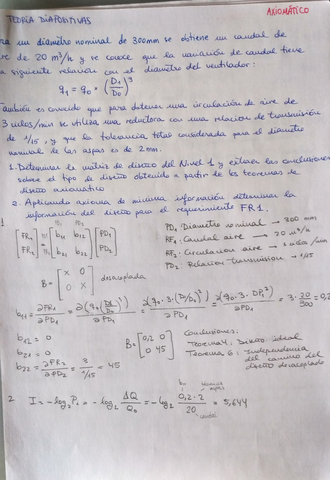 TEORÍA DIAPOSITIVAS
AXIOMÁTICO
un diámetro nominal de 300mm se obtiene un caudal de
de 20 m³/h y se conoce que la variación de caudal tiene
siguiente relación con el diámetro del ventilador:
q₁ = q₀ * (D₁/D₀)³
También es conocido que para obtener una circulación de aire de
3 ciclos/min se utiliza una reductora con una relación de transmisión
de 1/15, y que la tolerancia total considerada para el diámetro
nominal de las aspas es de 2mm.
1. Determinar la matriz de diseño del Nivel 1 y extraer las conclusiones
sobre el tipo de diseño obtenido a partir de los teoremas de
diseño axiomático
2. Aplicando axioma de mínima información determinar la
información del diseño para el requerimiento FR1.
1.
[FR₁ FR₂] = [b₁₁ b₁₂ b₂₁ b₂₂] [PD₁ PD₂]
PD₁: Diámetro nominal → 300 mm
RF₁: Caudal aire → 20 m³/h
RF₂: Circulación aire → 3 ciclos/min
PD₂: Relación Transmisión → 1/15
B = [x 0 0 x] desacoplada
b₁₁ = ∂FR₁/∂PD₁ = ∂(q₀ (D₁/D₀)³)/∂PD₁ = ∂(q₀·3·(D₁/D₀)²)/∂PD₁ = 3·20/300 = 0,2
b₁₂ = 0
b₂₁ = 0
b₂₂ = ∂FR₂/∂PD₂ = 3/1/15 = 45
B = [0,2 0 0 45]
Conclusiones:
Teorema 4. Diseño ideal
Teorema 6: Independencia
del camino del
diseño desacoplado
2. I = -log₂ Pᵢ = -log₂ ΔQ/Q₀ = -log₂ 0,2·2/20 = 5,644
b₁₁
caudal